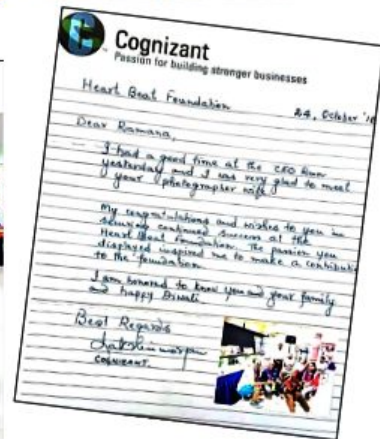 Cognizant
Passion for building stronger businesses
Heart Beat Foundation
24, October '
Dear Ramana,
I had a good time at the CEO
yesterday and I was very glad to meet
your (photographer wife)
My congratulations and wishes to you in
securing continued success at the
Heart Beat Foundation. The passion you
displayed inspired me to make a contribution
to the foundation.
I am honored to know you and your family
and happy Diwali
Best Regards
COGNIZANT.